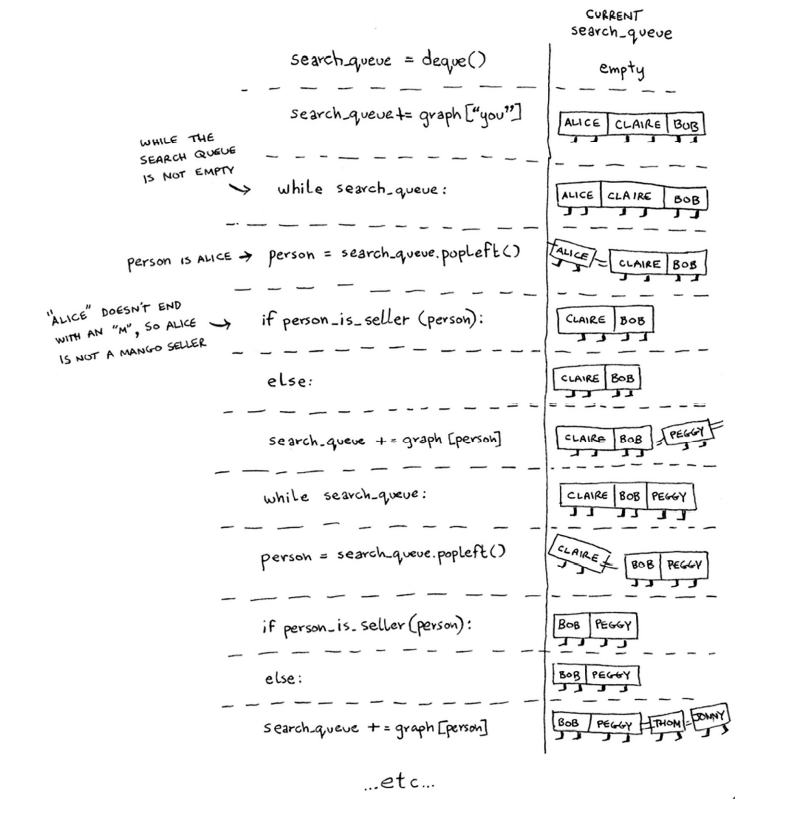 CURRENT
search_queue
search_queue = deque()
empty
search_queue += graph["you"]
ALICE CLAIRE BOB
WHILE THE
SEARCH QUEUE
IS NOT EMPTY
while search_queue:
ALICE CLAIRE BOB
person IS ALICE → person = search_queue.popLeft()
ALICE CLAIRE BOB
"ALICE" DOESN'T END
WITH AN "M", SO ALICE
IS NOT A MANGO SELLER
if person_is_seller (person):
CLAIRE BOB
else:
CLAIRE BOB
search_queue += graph [person]
CLAIRE BOB PEGGY
while search_queue:
CLAIRE BOB PEGGY
person = search_queue.popLeft()
CLAIRE BOB PEGGY
if person_is_seller(person):
BOB PEGGY
else:
BOB PEGGY
search_queue += graph [person]
BOB PEGGY THOM JONNY
...etc...